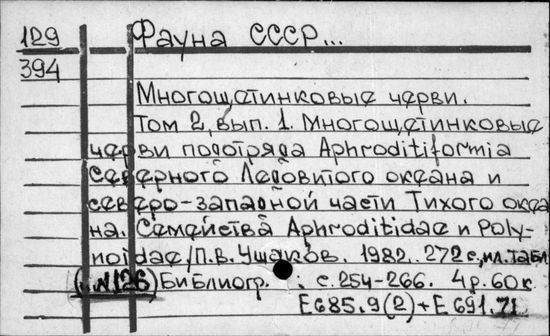 129
Фауна СССР...
394
Многощетинковые черви.
Том 2, вып. 1. Многощетинковые
черви подотряда Aphroditiformia
Северного Ледовитого океана и
северо-западной части Тихого океа
на. Семейства Aphroditidae и Poly-
noidae/П.В. Ушаков. 1982. 272 с, ил. табл
(.. №126) Библиогр.: с. 254-266. 4р. 60к
Е685.9(2)+Е691.71